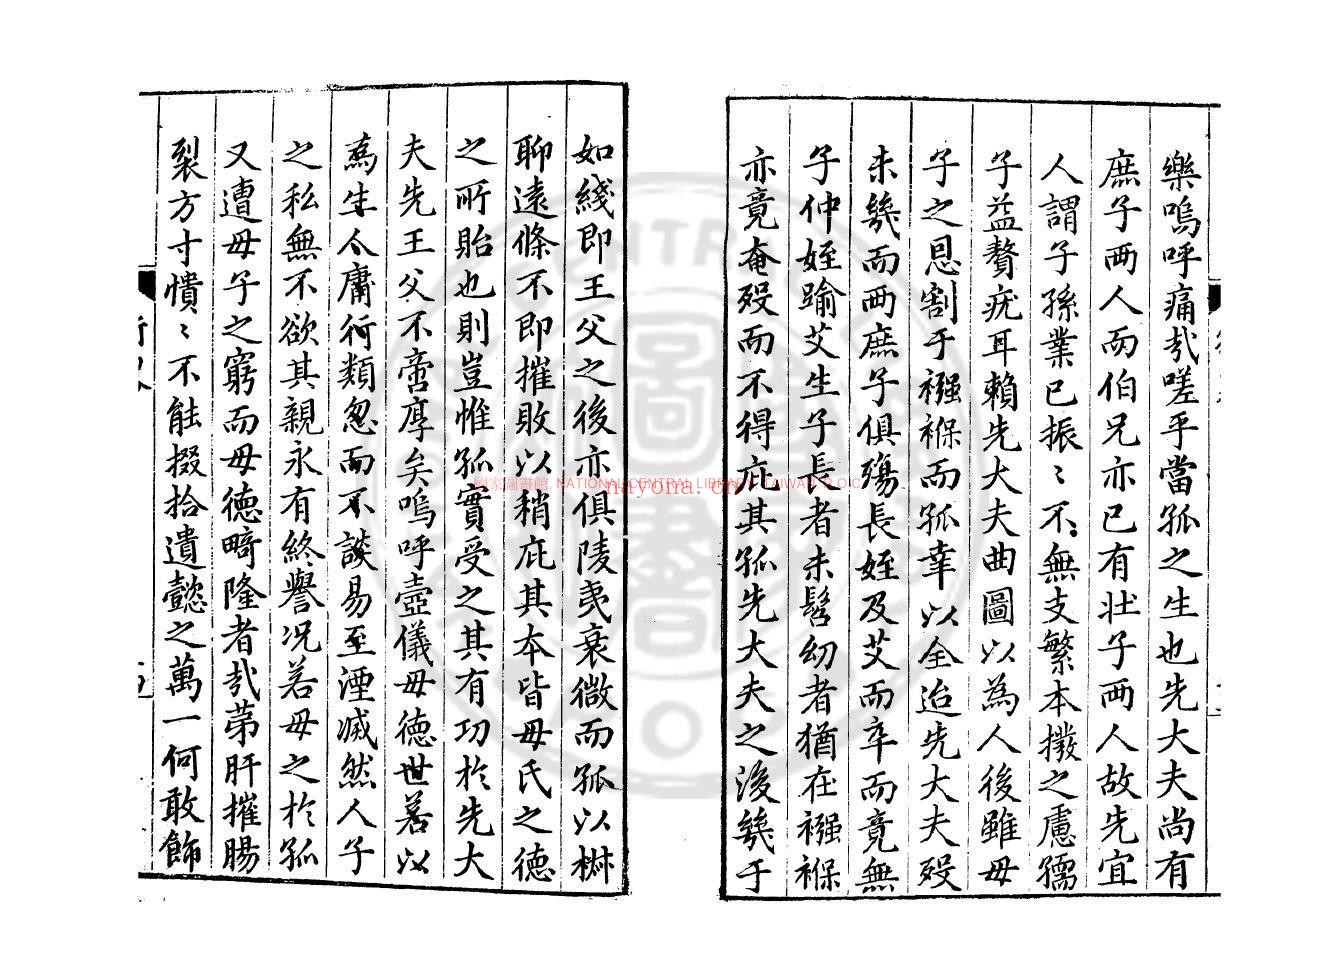 樂嗚呼痛哉嗟乎當孤之生也先大夫尚有
庶子兩人而伯兄亦已有壯子兩人故先宜
人謂子孫業已振〻不無支繁本撥之慮孺
子益贅疣耳賴先大夫曲圖以為人後雖毋
子之恩割于襁褓而孤幸以全迨先大夫歿
未幾而兩庶子俱殤長姪及艾而卒而竟無
子仲姪踰艾生子長者未髫幼者猶在襁褓
亦竟奄歿而不得庇其孤先大夫之後幾于
如綫即王父之後亦俱陵夷衰微而孤以樕
聊遠條不即摧敗以稍庇其本皆毋氏之德
之所貽也則豈惟孤實受之其有功於先大
夫先王父不啻厚矣嗚呼壼儀毋德世募以
爲生人庸行類忽而不談易至湮滅然人子
之私無不欲其親永有終譽況若毋之於孤
又遭毋子之窮而毋德疇隆者哉苐肝摧腸
裂方寸憒〻不能掇拾遺懿之萬一何敢飾
國家圖書館 NATIONAL CENTRAL LIBRARY, TAIWAN, R.O.C
nuyona.cn